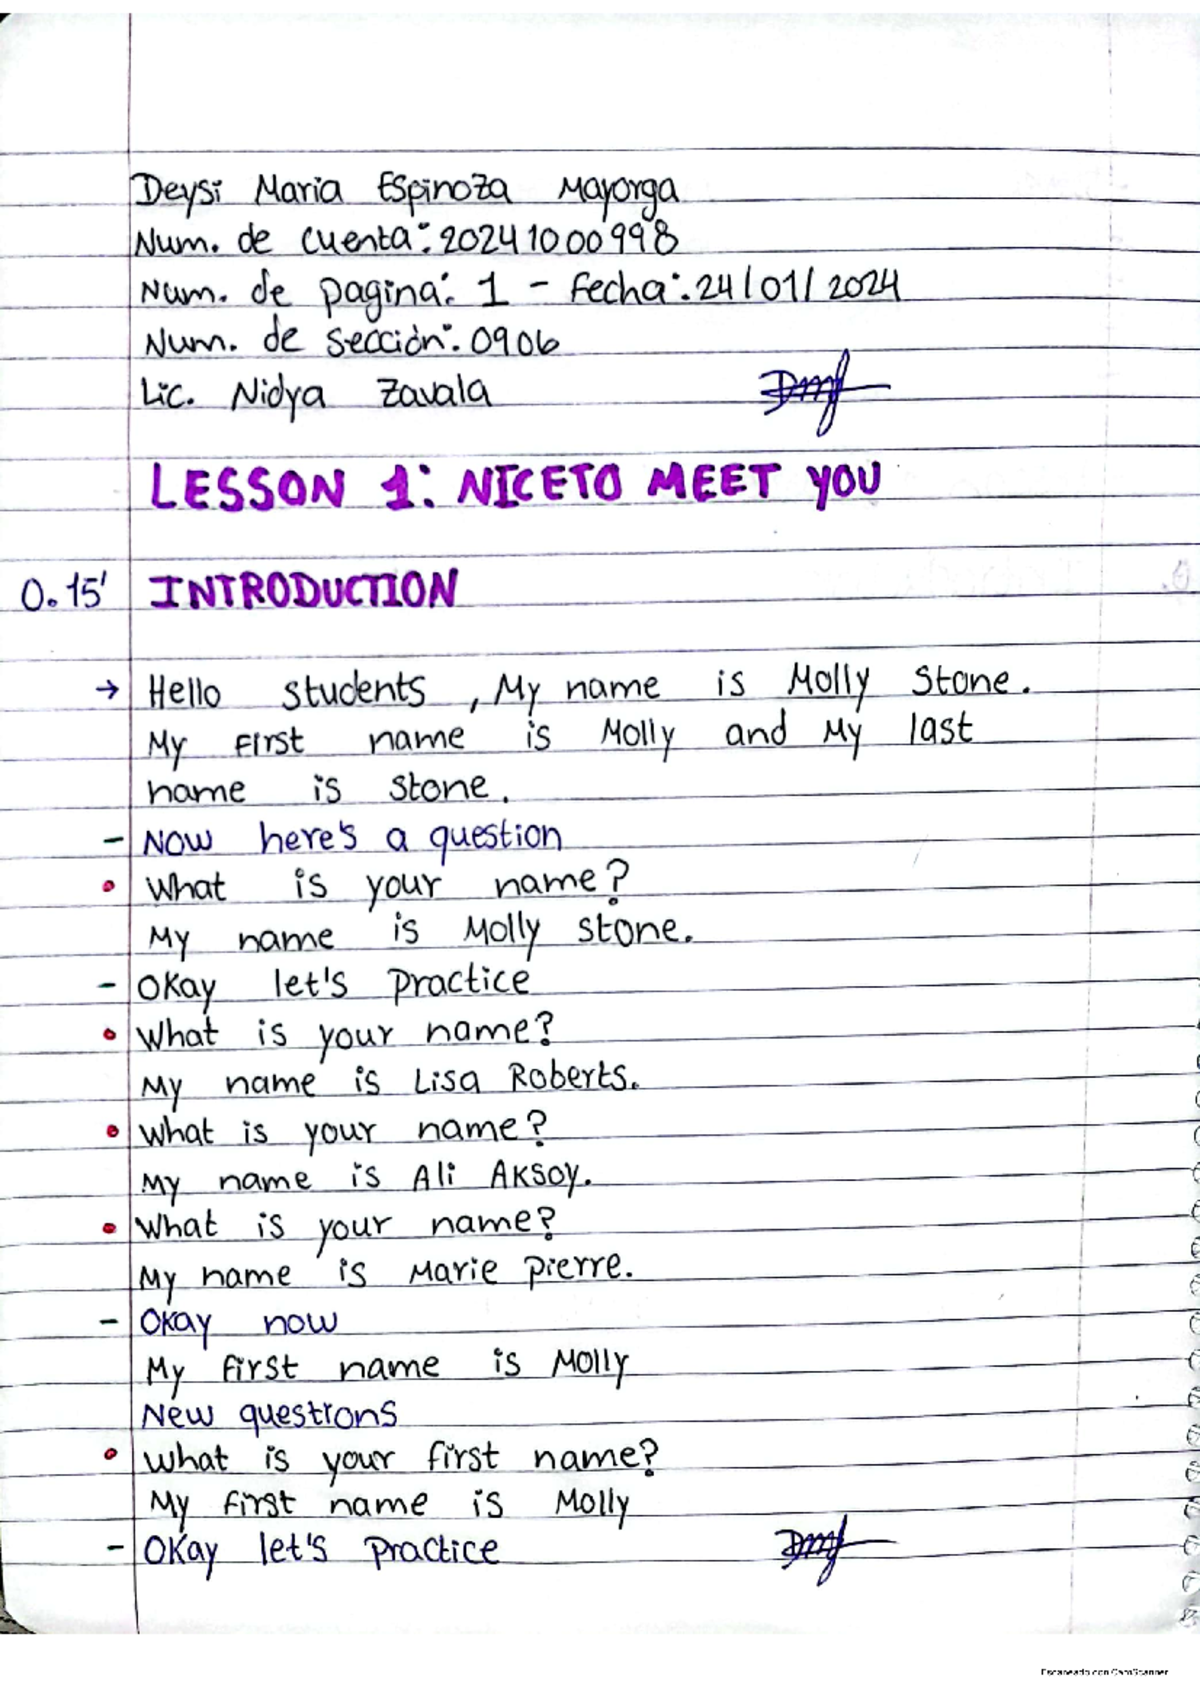 Deysi Maria Espinoza Mayorga
Num. de cuenta: 20241000998
Num. de pagina: 1 - Fecha: 24/01/2024
Num. de sección: 0906
Lic. Nidya Zavala
LESSON 1: NICETO MEET YOU
0.15' INTRODUCTION
→ Hello students, My name is Molly Stone.
My First name is Molly and My last
name is stone.
- Now here's a question
• What is your name?
My name is Molly stone.
- Okay let's practice
• What is your name?
My name is Lisa Roberts.
• What is your name?
My name is Ali Aksoy.
• What is your name?
My name is Marie pierre.
- Okay now
My first name is Molly
New questions
• What is your first name?
My first name is Molly
- Okay let's practice
Escaneado con CamScanner